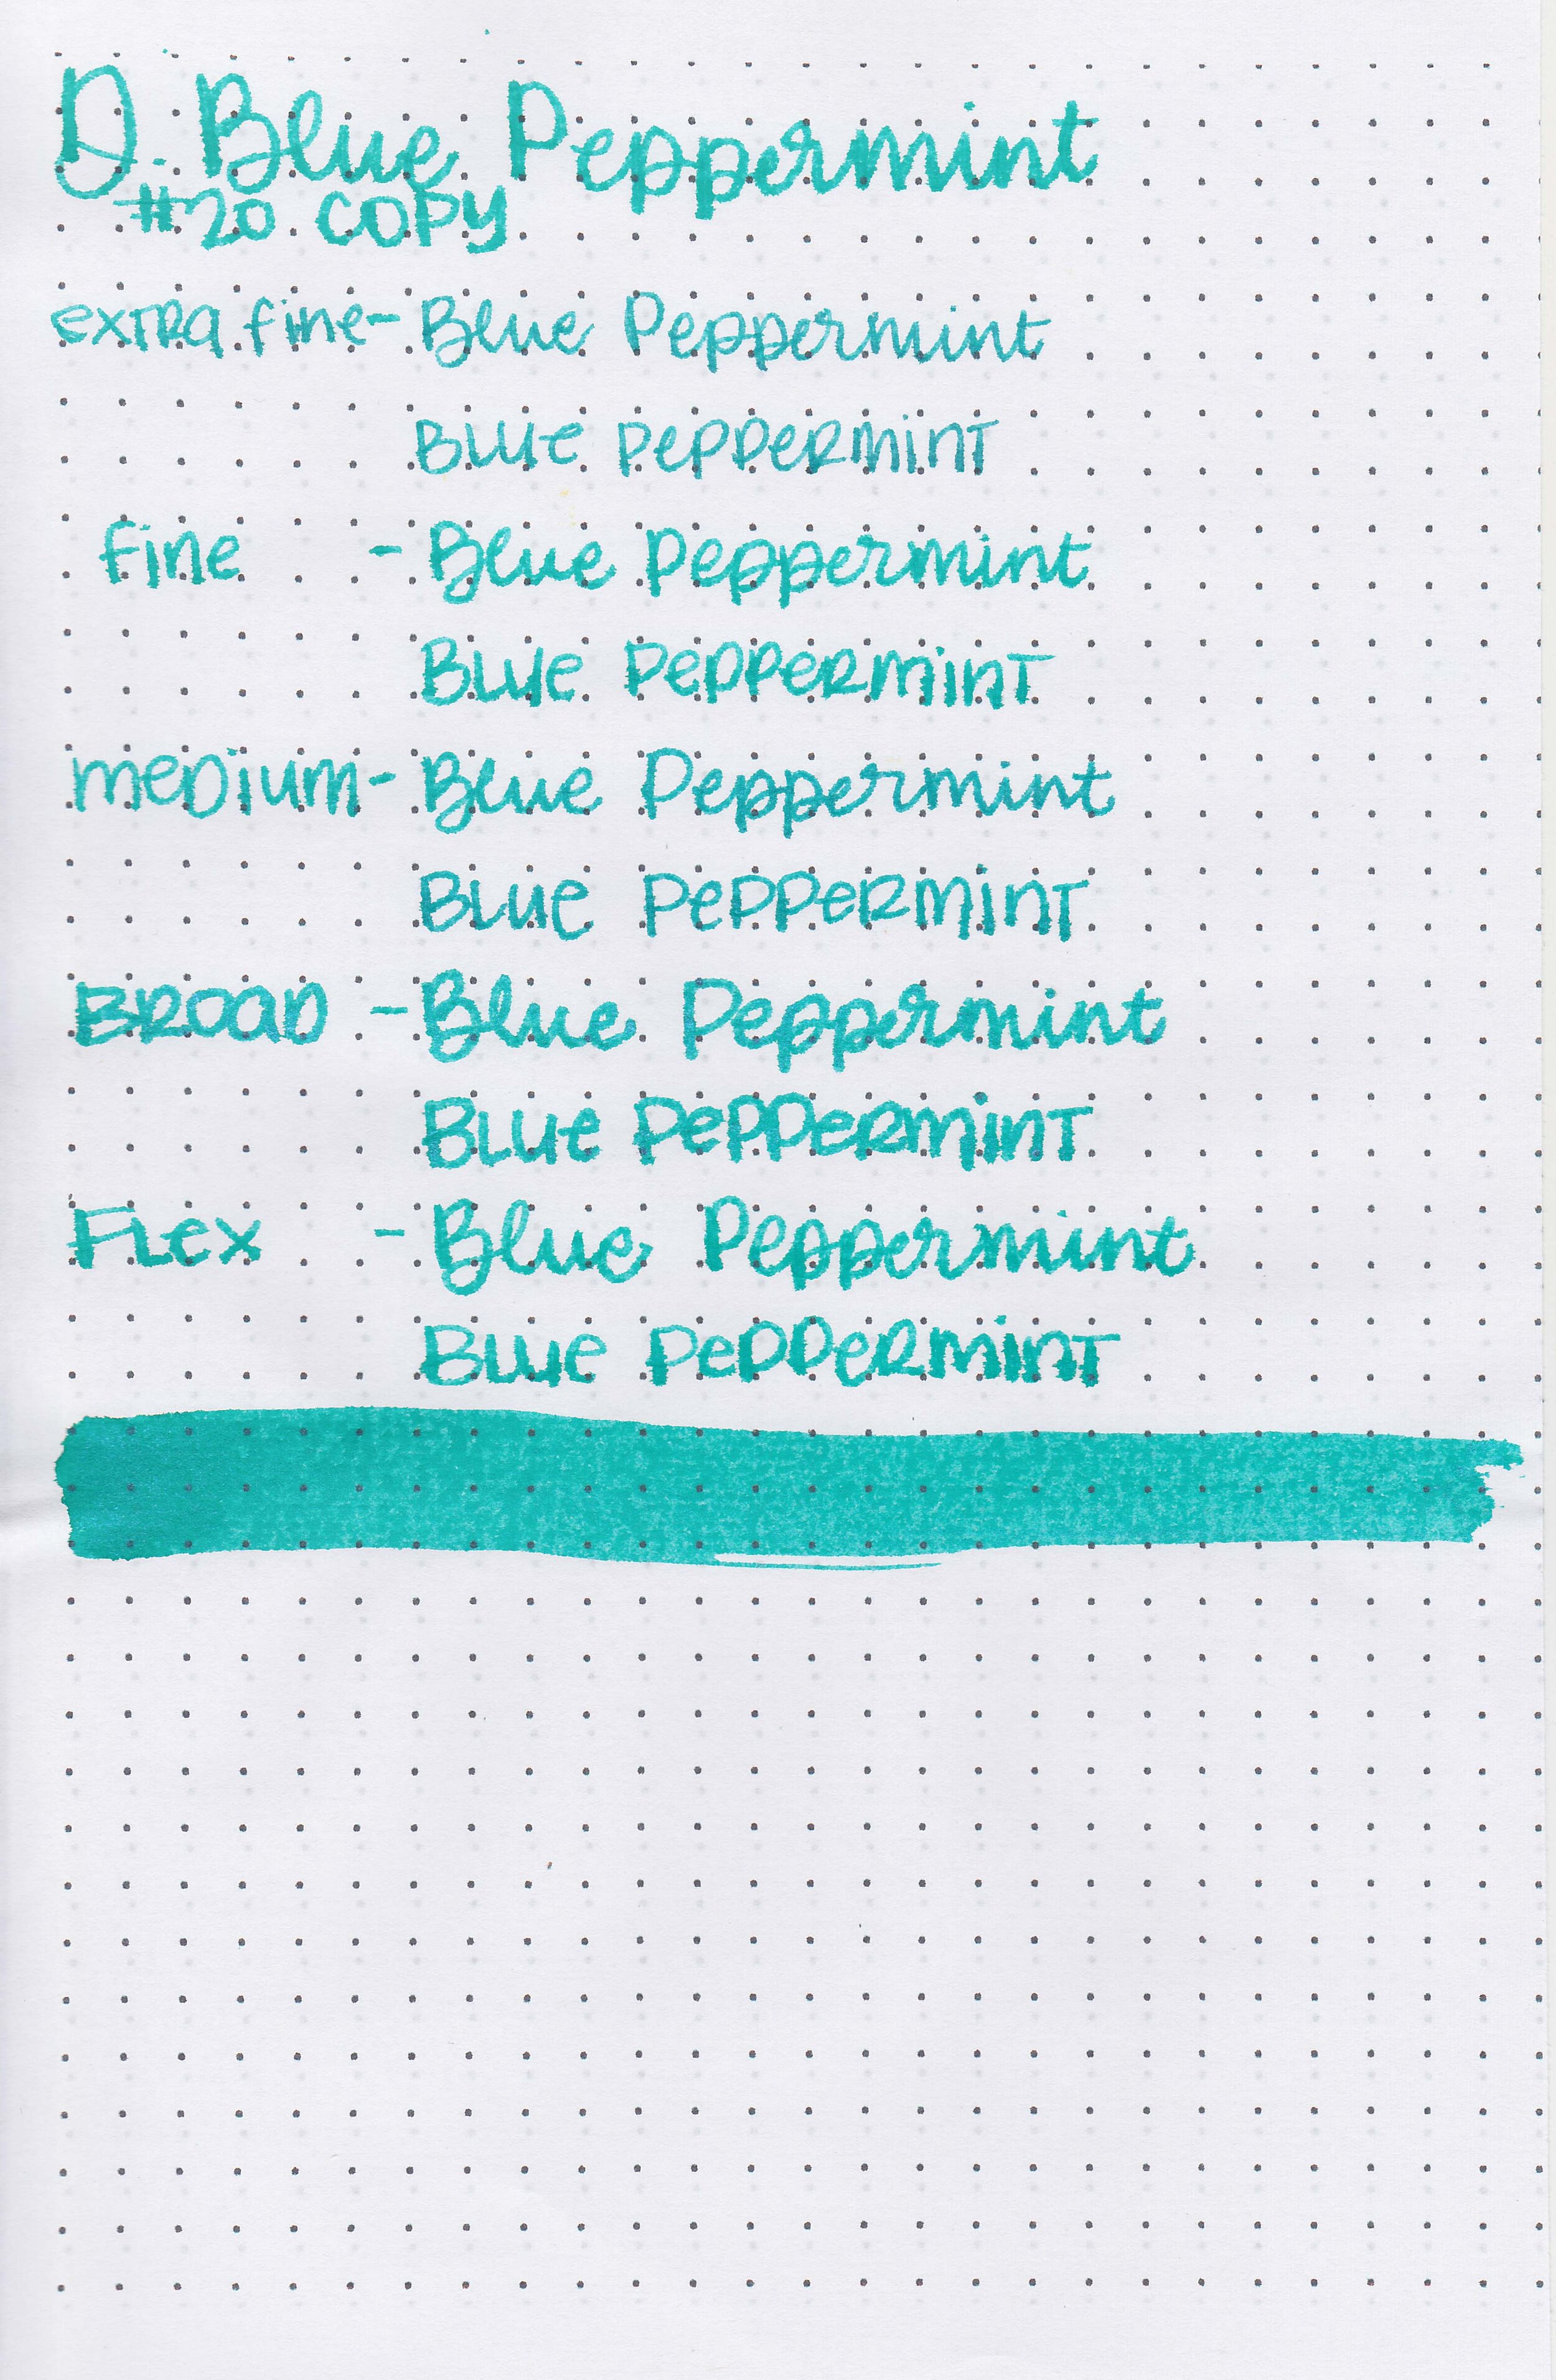 D. Blue Peppermint
#20 COPY
extra fine - Blue Peppermint
Blue Peppermint
fine - Blue Peppermint
Blue Peppermint
medium - Blue Peppermint
Blue Peppermint
Broad - Blue Peppermint
Blue Peppermint
Flex - Blue Peppermint
Blue Peppermint